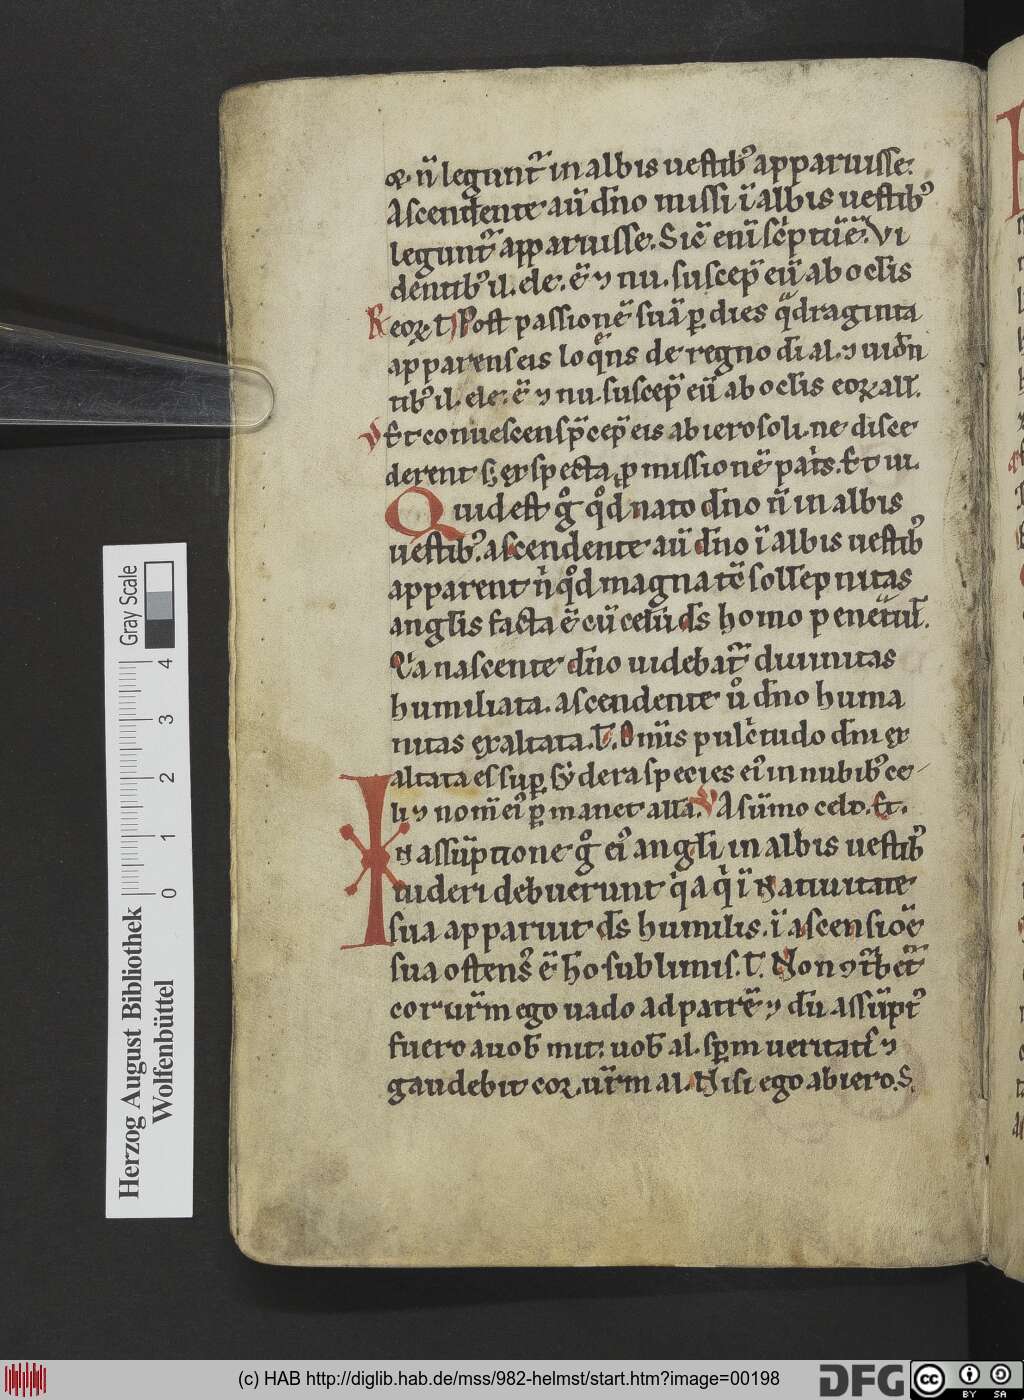 n̄ legunt᷑ in albis uestib᷒ apparuisse.
Ascendente aū dn̄o missi ī albis uestib᷒
legunt᷑ apparuisse. Sic̄ enī sc̄ptū ē. Vi
dentib᷒ il. ele. ē ⁊ nu. suscep̄ eū ab ocl̄is
R eoꝝ. Post passionē suā ꝑ dies q̄draginta
apparens eis loq̄ns de regno dī al. ⁊ uidn̄
tib᷒ il. ele. ē ⁊ nu. suscep̄ eū ab ocl̄is eoꝝ all̄.
V Et conuescens p̄cep̄ eis ab ierosoli. ne disce
derent s; exspecta. ꝓmissionē pat̄s. Et ui.
Quid est g̊ qd̄ nato dn̄o n̄ in albis
uestib᷒. ascendente aū dn̄o ī albis uestib᷒
apparent n̄ qd̄ magna tc̄ soll̄epnitas
angl̄is facta ē cū celū ds̄ homo penet̄ul̄.
Q̇a nascente dn̄o uidebat᷑ diuinitas
humiliata. ascendente ů dn̄o huma
nitas exaltata. Om̄is pulc̄tudo dn̄i ex
altata es suꝑ sydera species ei᷒ in nubib᷒ ce
li ⁊ nom̄ ei᷒ ꝑmanet alla. V A sūmo celo. Et.
In assūptione g̊ ei᷒ angl̄i in albis uestib᷒
uideri debuerunt q̇a q̇ ī Natiuitate
sua apparuit ds̄ humilis. ī ascensiōe
sua ostens᷒ ē ho sublimis. Non ⁊t᷑bet᷑
cor ur̄m ego uado ad patrē ⁊ dū assūpt᷒
fuero a uob̄ mit: uob̄ al. sp̄m ueritatī ⁊
gaudebit cor. ur̄m al. Nisi ego abiero. S.
Herzog August Bibliothek
Wolfenbüttel
0 1 2 3 4
Gray Scale
(c) HAB http://diglib.hab.de/mss/982-helmst/start.htm?image=00198
DFG
cc BY SA